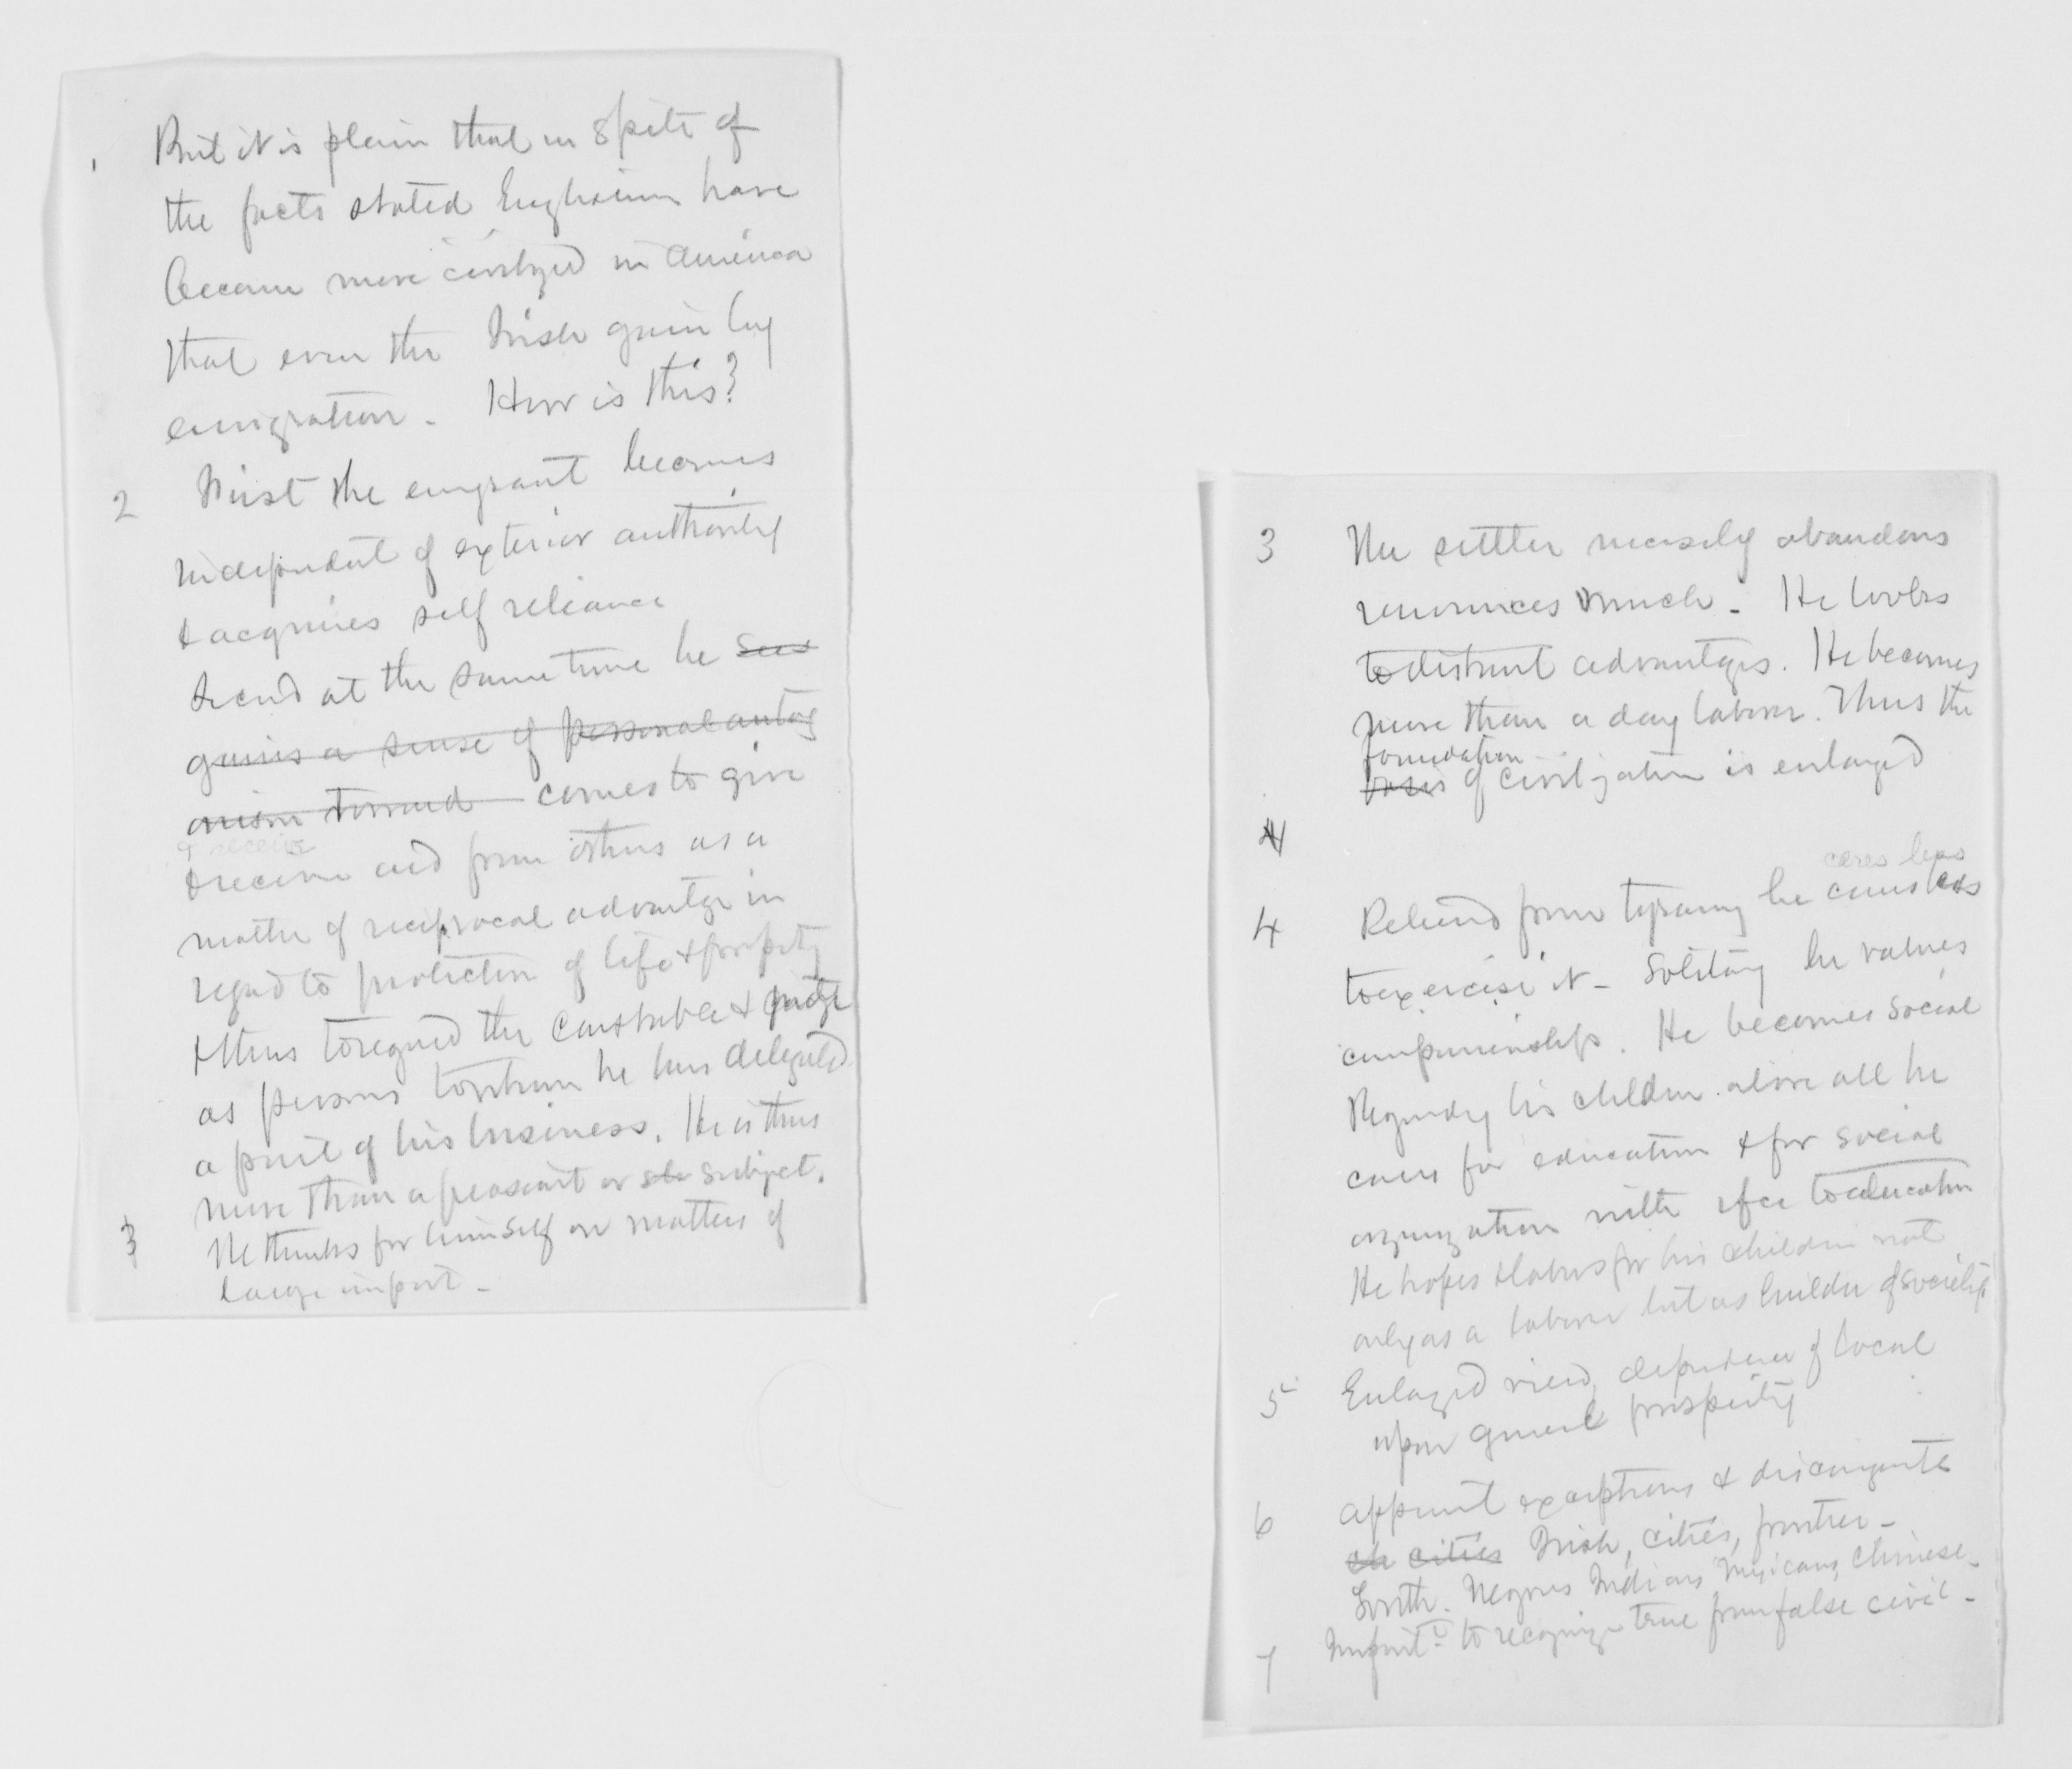 1 But it is plain that in spite of
the facts stated Englishmen have
become more civilized in America
that even the Irish gain by
emigration - How is this?
2 First the emigrant becomes
independent of exterior authority
& acquires self reliance
Second at the same time he sees
gains a sense of personal antag
onism toward comes to give
& receive
& receive aid from others as a
matter of reciprocal advantage in
regard to protection of life & property
& thus to regard the constable & judge
as persons to whom he has delegated
a part of his business. He is thus
more than a peasant or subject.
3 He thinks for himself on matters of
large import -
3 The settler necessarily abandons
renounces much - He looks
to distant advantages. He becomes
more than a day laborer. Thus the
foundation
basis of civilization is enlarged
4
cares less
4 Relieved from tyranny he cares less
to exercise it - Solitary he values
companionship. He becomes social
Regarding his children above all he
cares for education & for social
organization with refce to education
He hopes & labors for his children not
only as a laborer but as builder of society
5 Enlarged view, dependence of local
upon general prosperity
6 Apparent exceptions &
cities Irish, cities, frontier -
South. Negroes Indians Mexicans, Chinese -
7 Import.t to recognize true from false civil -